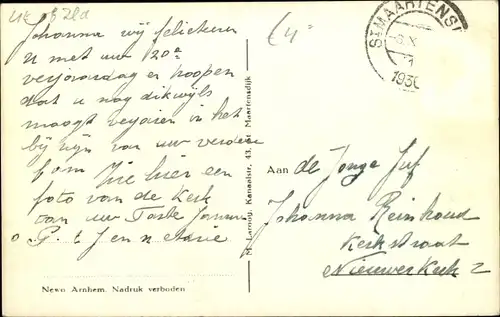 Johanna wij feliciteren
u met uw 12de
verjaardag en hoopen
dat u nog dikwijls
moogt verjaren in het
bij zijn van uw verdere
fam Zie hier een
foto van de Kerk
van uw Tante
o. P. t J en n
Newo Arnhem. Nadruk verboden
M. Lanooy, Kanaalstr. 43, St Maartensdijk
ST MAARTENSD
1930
Aan de Jonge Juf
Johanna Reinhoud
Kerkstraat
Nieuwerkerk Z